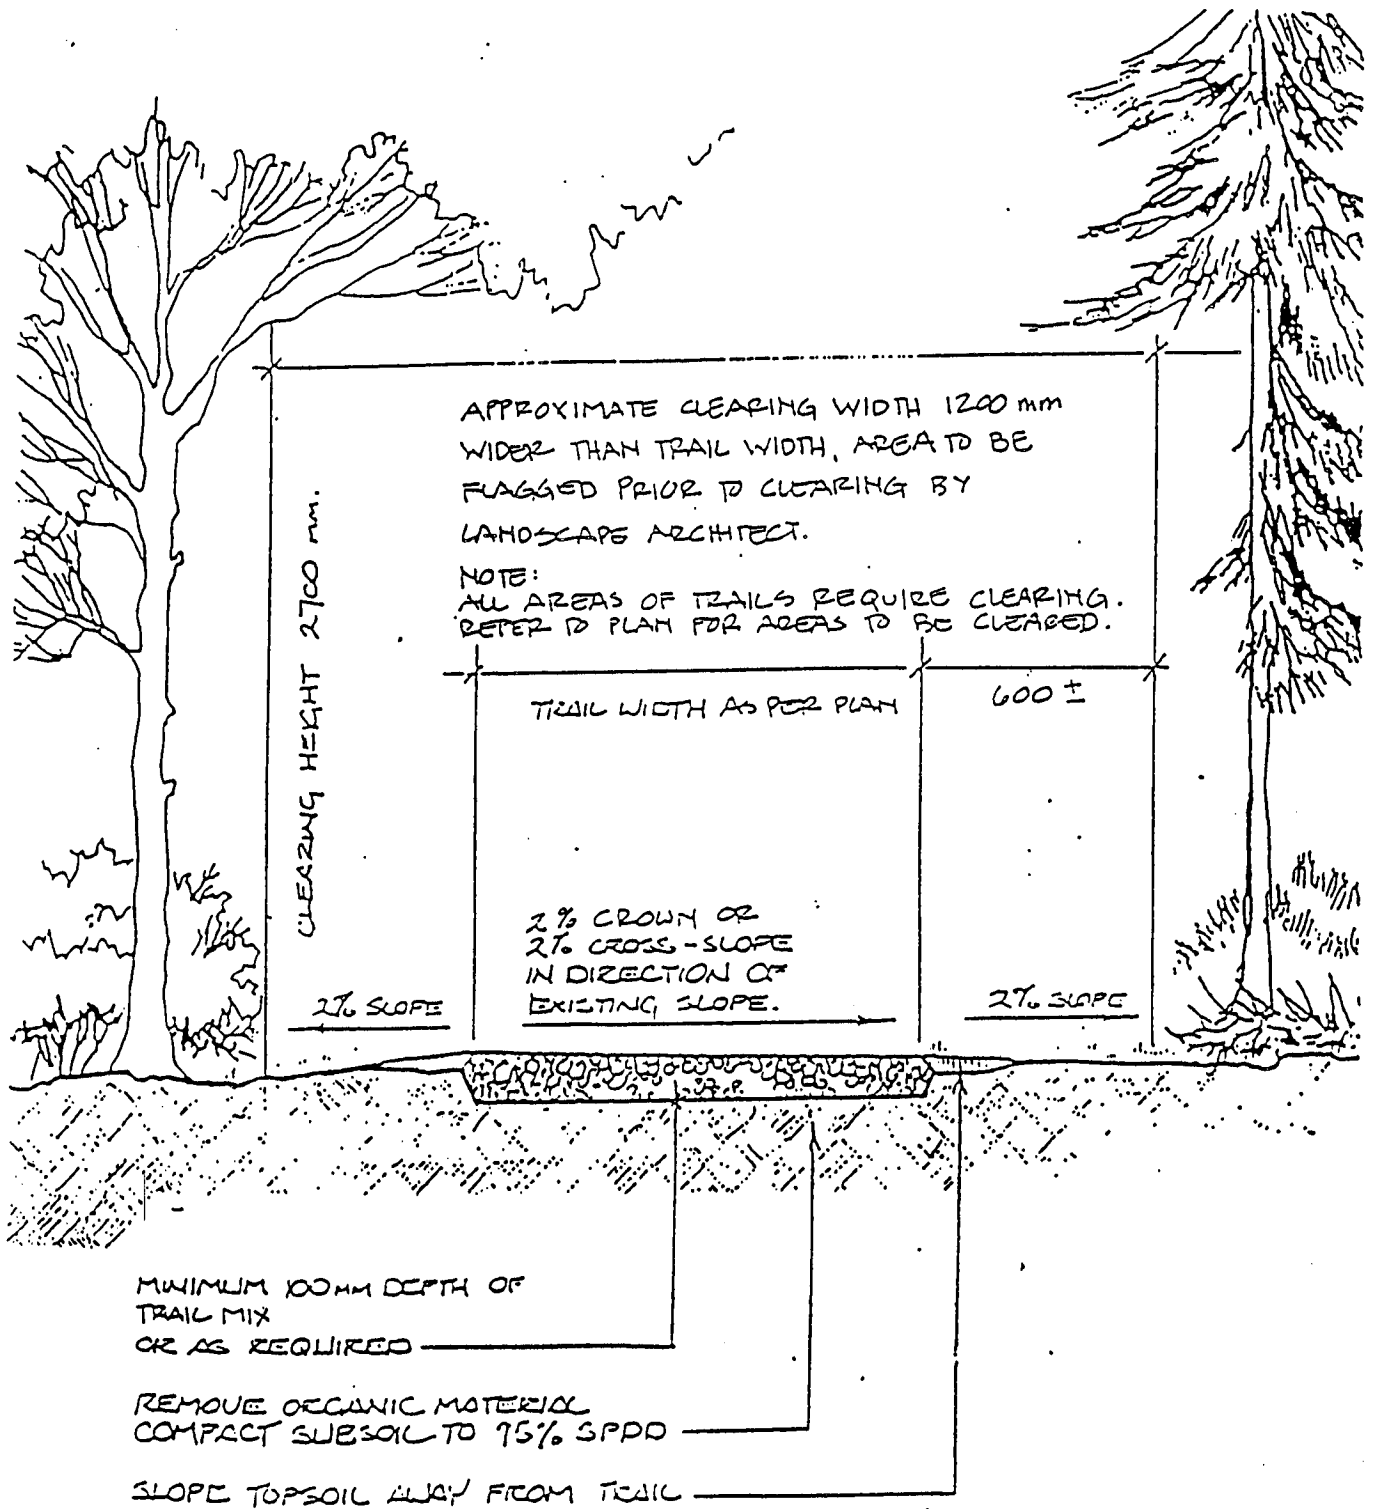 APPROXIMATE CLEARING WIDTH 1200 mm
WIDER THAN TRAIL WIDTH, AREA TO BE
FLAGGED PRIOR TO CLEARING BY
LANDSCAPE ARCHITECT.
NOTE:
ALL AREAS OF TRAILS REQUIRE CLEARING.
REFER TO PLAN FOR AREAS TO BE CLEARED.
CLEARING HEIGHT 2700 mm.
TRAIL WIDTH AS PER PLAN
600 ±
2% CROWN OR
2% CROSS-SLOPE
IN DIRECTION OF
EXISTING SLOPE.
2% SLOPE
2% SLOPE
MINIMUM 100MM DEPTH OF
TRAIL MIX
OR AS REQUIRED
REMOVE ORGANIC MATERIAL
COMPACT SUBSOIL TO 95% SPDD
SLOPE TOPSOIL AWAY FROM TRAIL